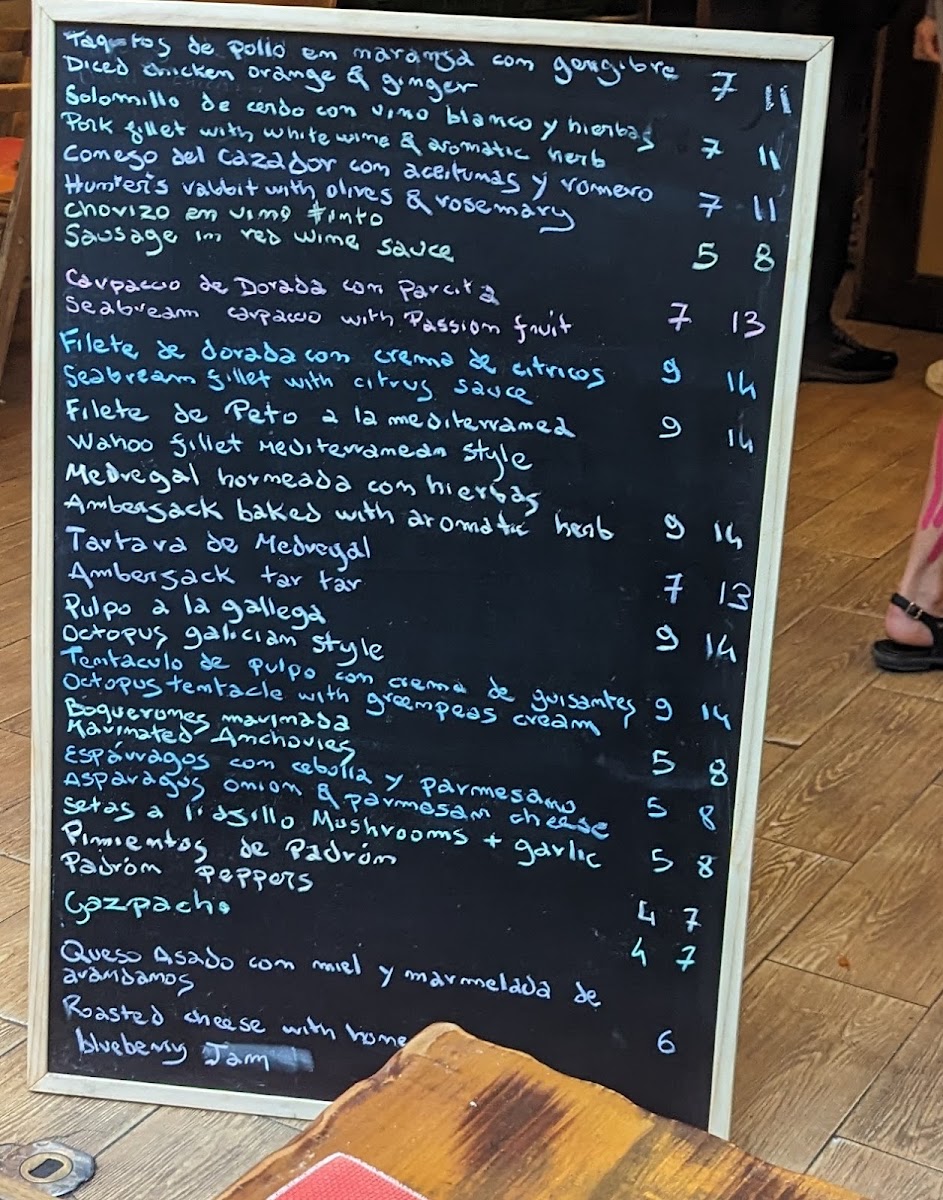 Taqotos de pollo em maranja com gengibre
Diced chicken orange & ginger 7 11
Solomillo de cerdo con vino blanco y hierbas
Pork fillet with white wine & aromatic herb 7 11
Comego del cazador com aceitumas y romero
Hunter's rabbit with olives & rosemary 7 11
Chorizo em vimo tinto
Sausage im red wime sauce 5 8
Carpaccio de Dorada com Parcita
Seabream carpaccio with Passiom fruit 7 13
Filete de dorada con crema de citricos 9 14
Seabream fillet with citrus sauce
Filete de Peto a la mediterramea 9 14
Wahoo fillet Mediterramean style
Medregal hormeada com hierbas
Ambersack baked with aromatic herb 9 14
Tartara de Medregal
Ambersack tar tar 7 13
Pulpo a la gallega
Octopus galiciam style 9 14
Temtaculo de pulpo com crema de guisantes
Octopus temtacle with greempeas cream 9 14
Boqueromes marimada
Marimated Amchovies 5 8
Espárragos com cebolla y parmesamo
Asparagus omiom & parmesam cheese 5 8
Setas a l'agillo Mushrooms + garlic 5 8
Pimientos de Padróm
Padróm Peppers 4 7
Gazpacho 4 7
Queso Asado com miel y marmelada de
aramdamos
Roasted cheese with home
blueberry Jam 6